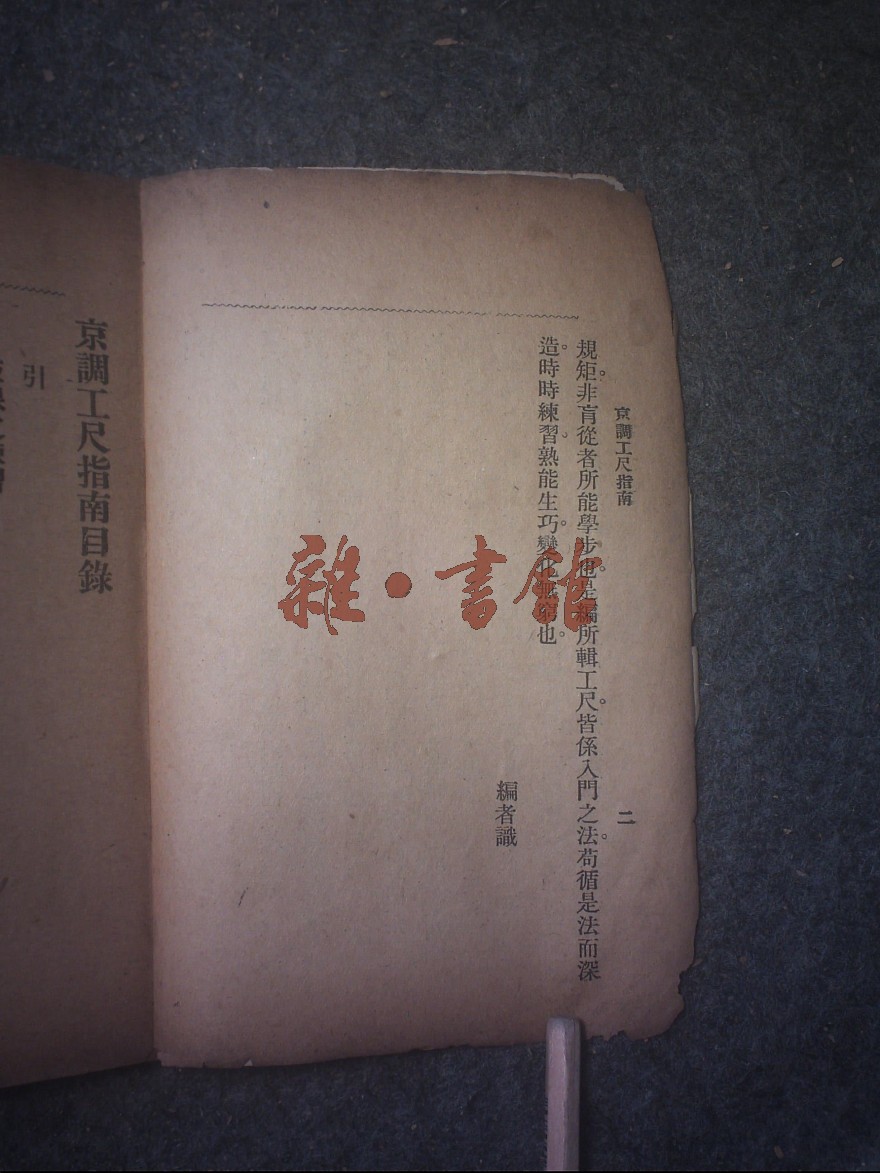 京調工尺指南
二
規矩。非肓從者所能學步也。是編所輯工尺。皆係入門之法。苟循是法而深
造。時時練習。熟能生巧。變化無窮也。
編者識
京調工尺指南目錄
引
雜·書館